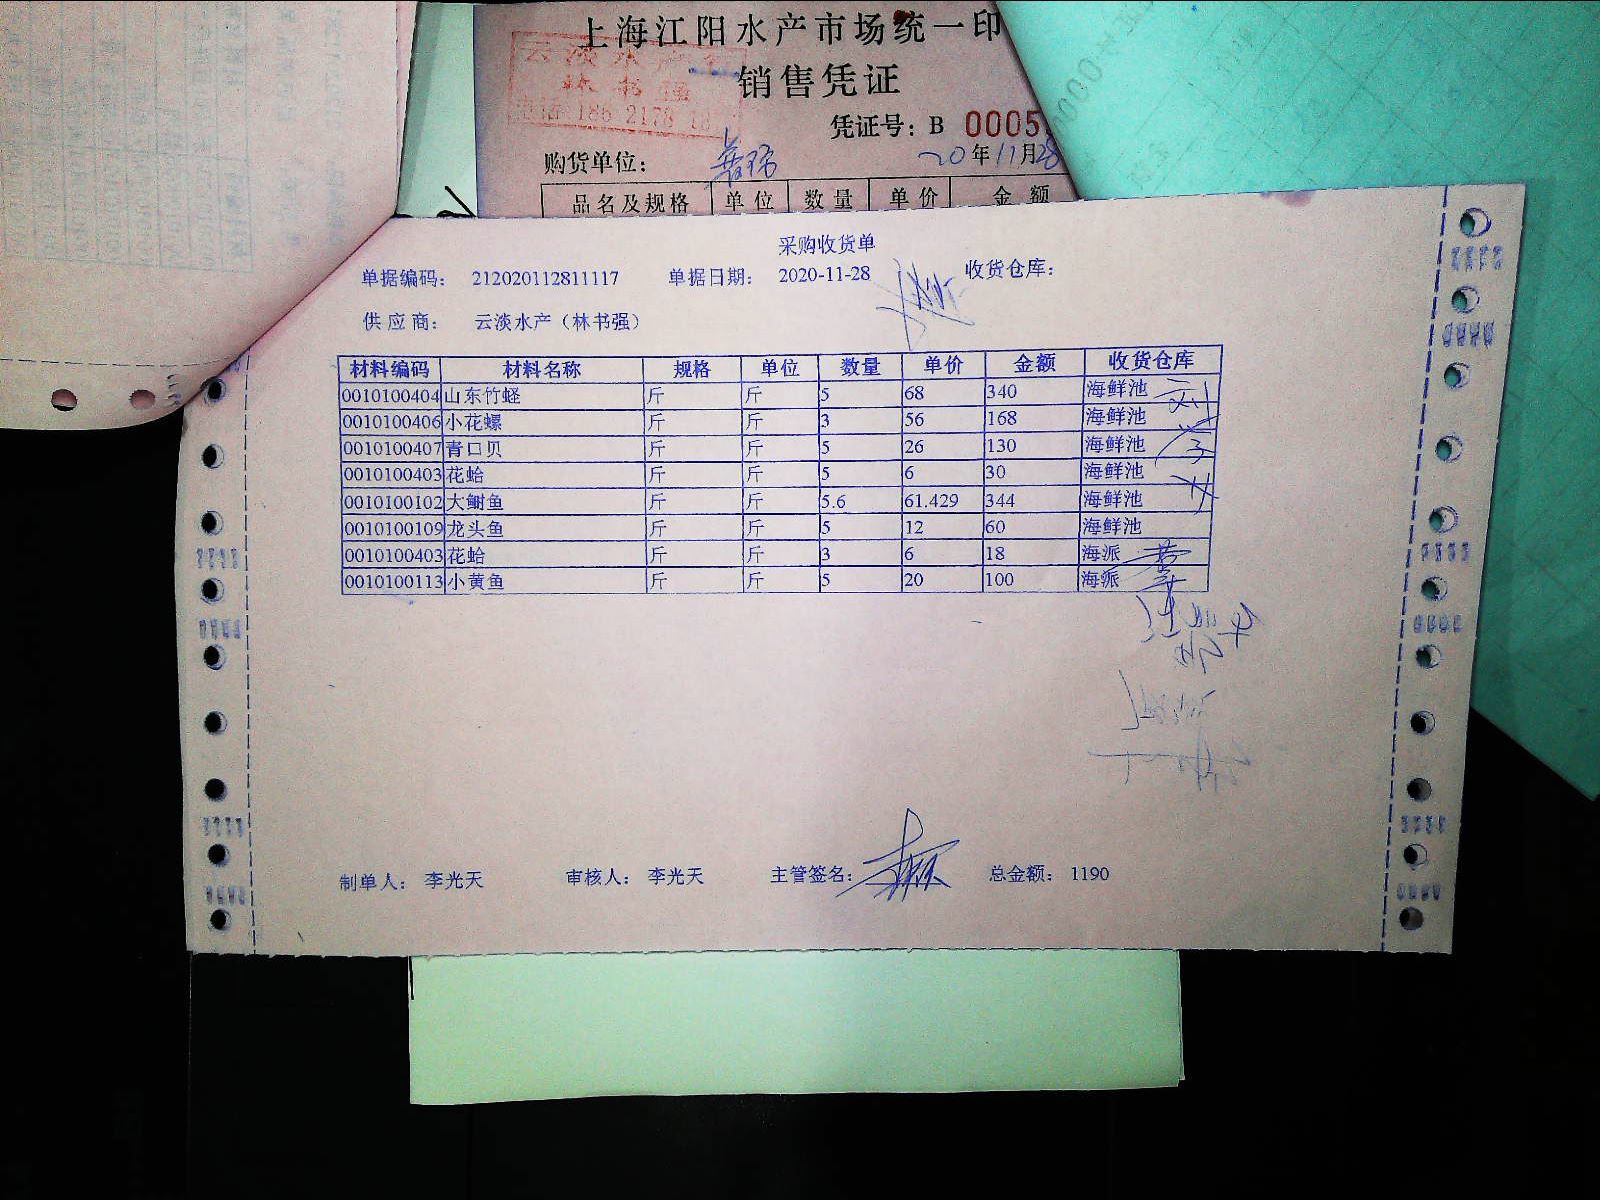 上海江阳水产市场统一印
云淡水产
林书强
186 2178 18
销售凭证
凭证号：B 0005
购货单位：
20年11月28
品名及规格 单位 数量 单价 金额
采购收货单
单据编码： 212020112811117 单据日期： 2020-11-28 收货仓库：
供应商： 云淡水产（林书强）
材料编码 材料名称 规格 单位 数量 单价 金额 收货仓库
0010100404 山东竹蛏 斤 斤 5 68 340 海鲜池
0010100406 小花螺 斤 斤 3 56 168 海鲜池
0010100407 青口贝 斤 斤 5 26 130 海鲜池
0010100403 花蛤 斤 斤 5 6 30 海鲜池
0010100102 大鲥鱼 斤 斤 5.6 61.429 344 海鲜池
0010100109 龙头鱼 斤 斤 5 12 60 海鲜池
0010100403 花蛤 斤 斤 3 6 18 海派
0010100113 小黄鱼 斤 斤 5 20 100 海派
制单人： 李光天 审核人： 李光天 主管签名： 总金额： 1190